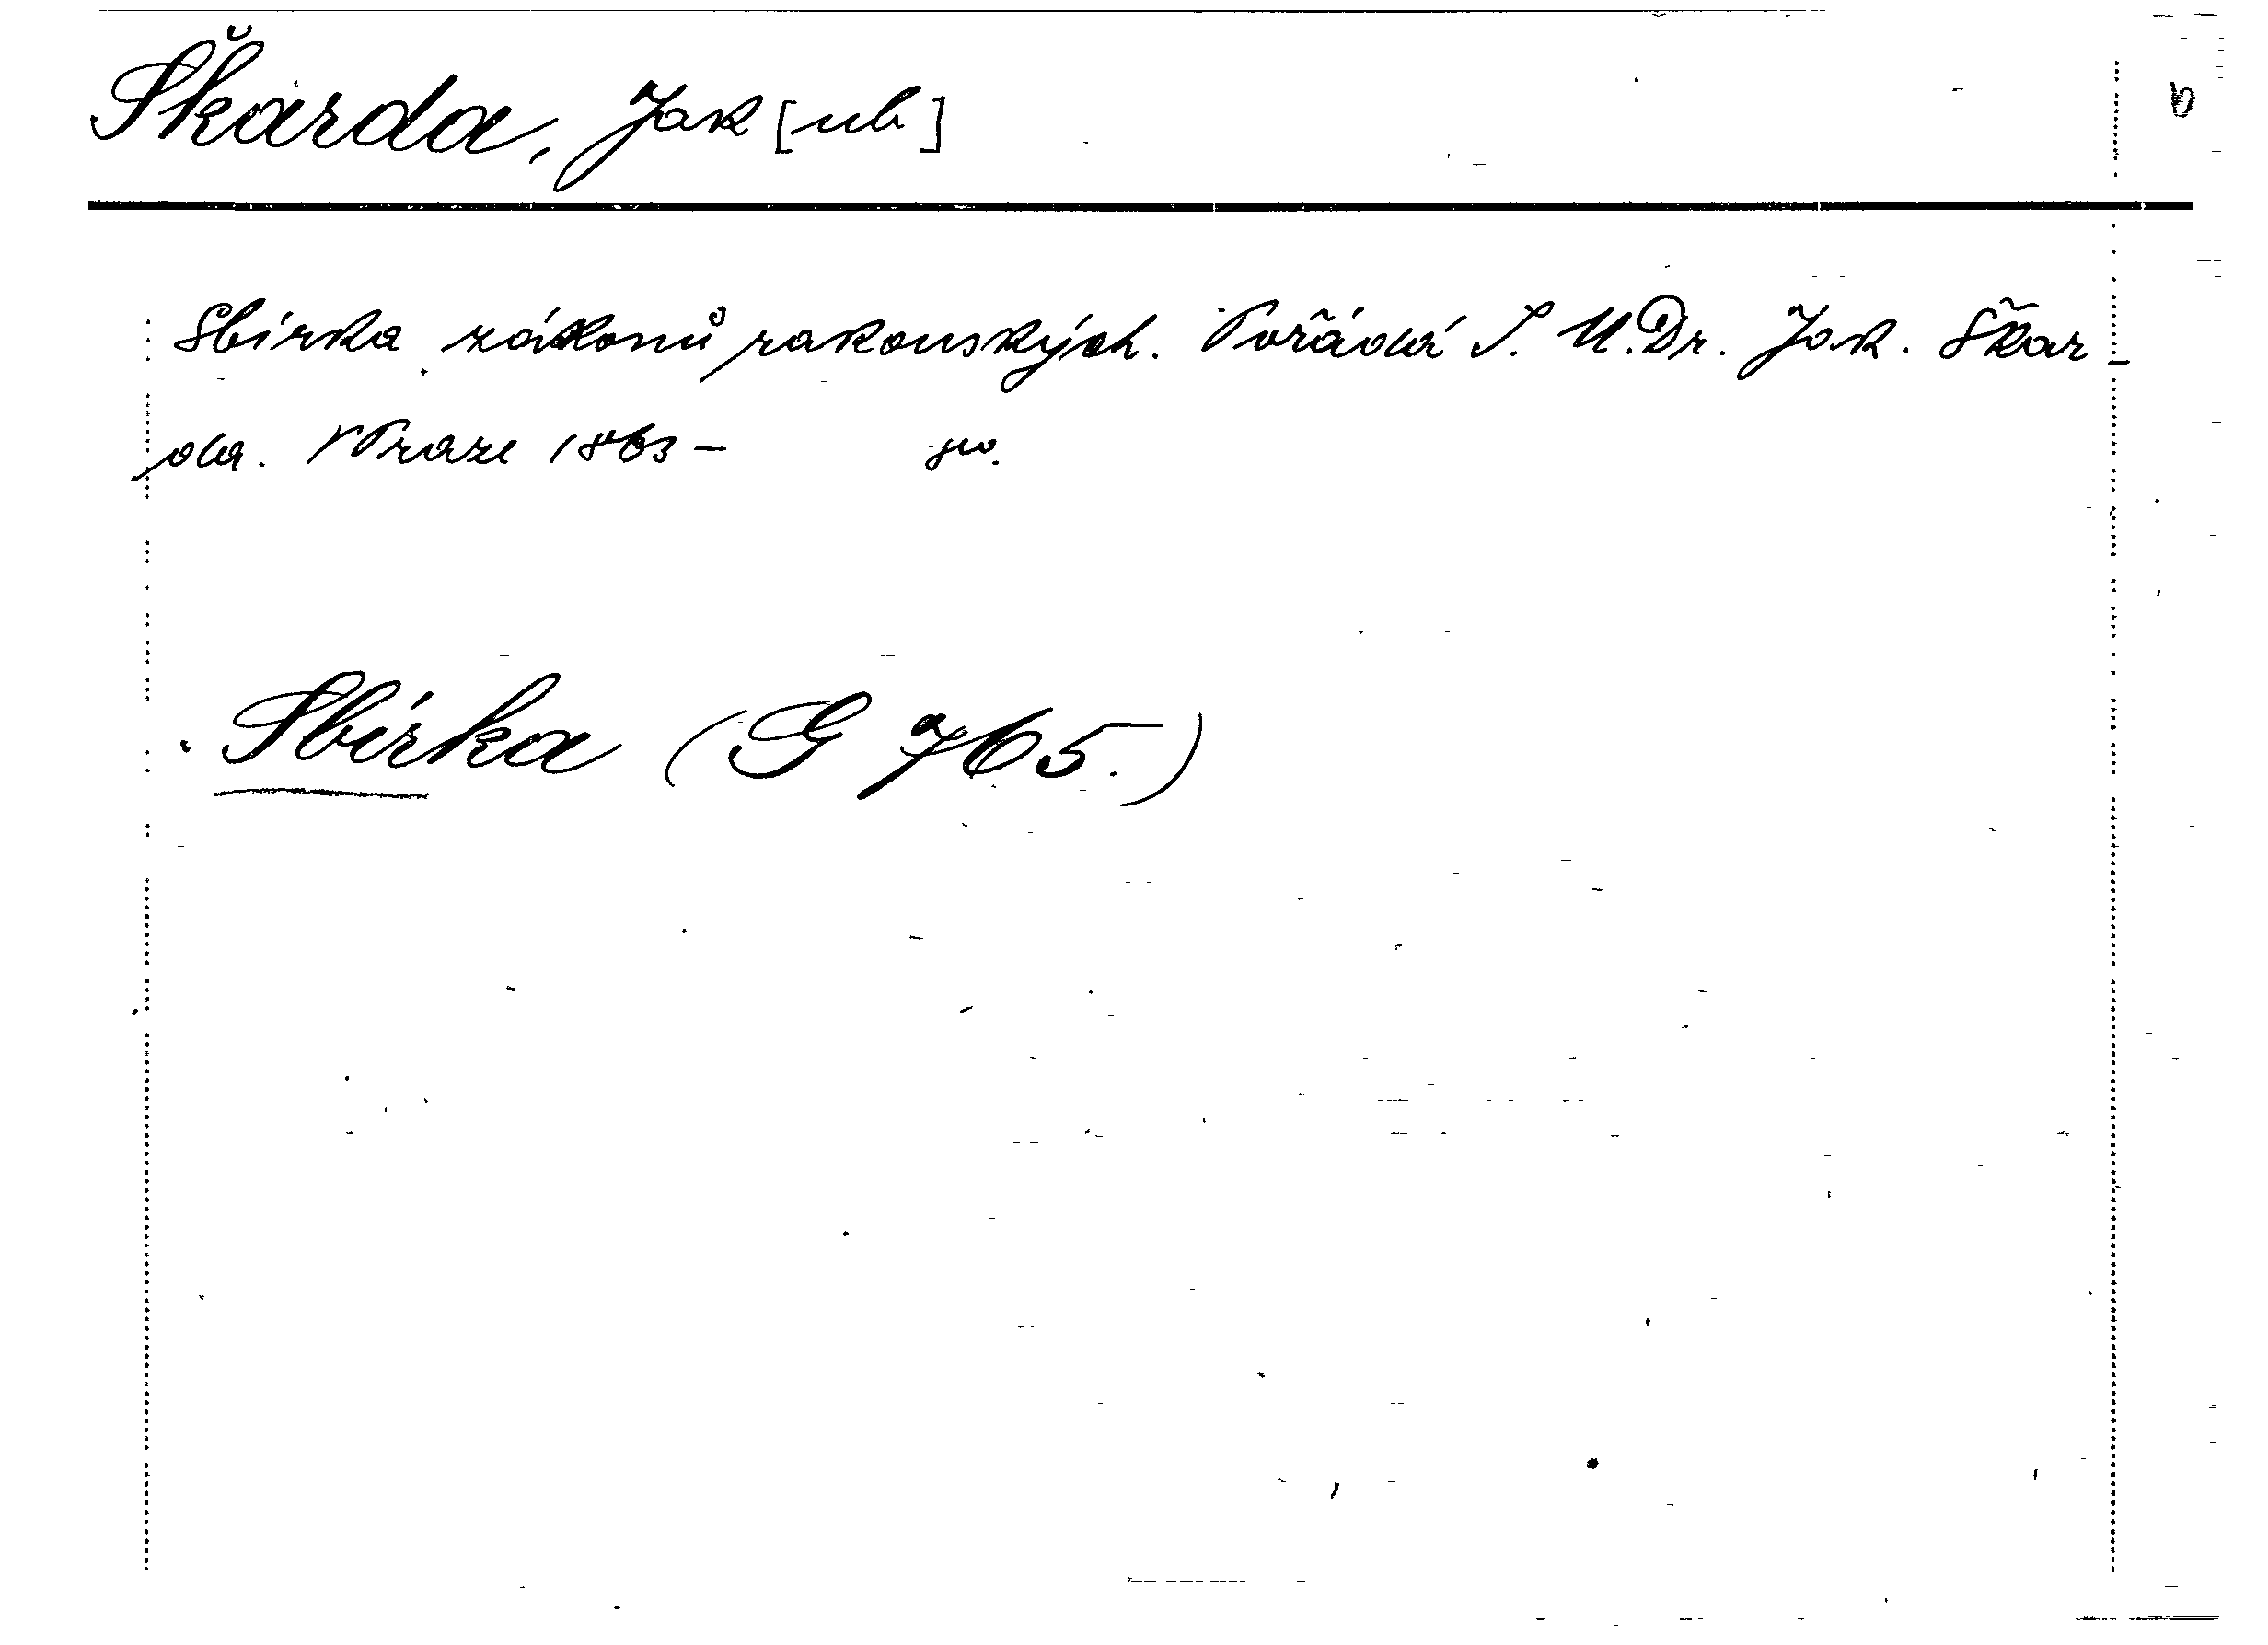 Škarda, Jak[ub]
Sbírka zákonů rakouských. Pořádá J. U. Dr. Jak. Škar-
da. V Praze 1863 –
Sbírka (G 765.)